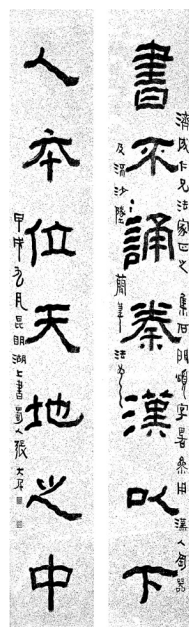 書不誦秦漢以下
濟成仁兄法家正之 集石門頌字畧參用漢人匋器
及流沙墜簡筆法為之
人本位天地之中
甲戌九月昆明湖上書蜀人張大千